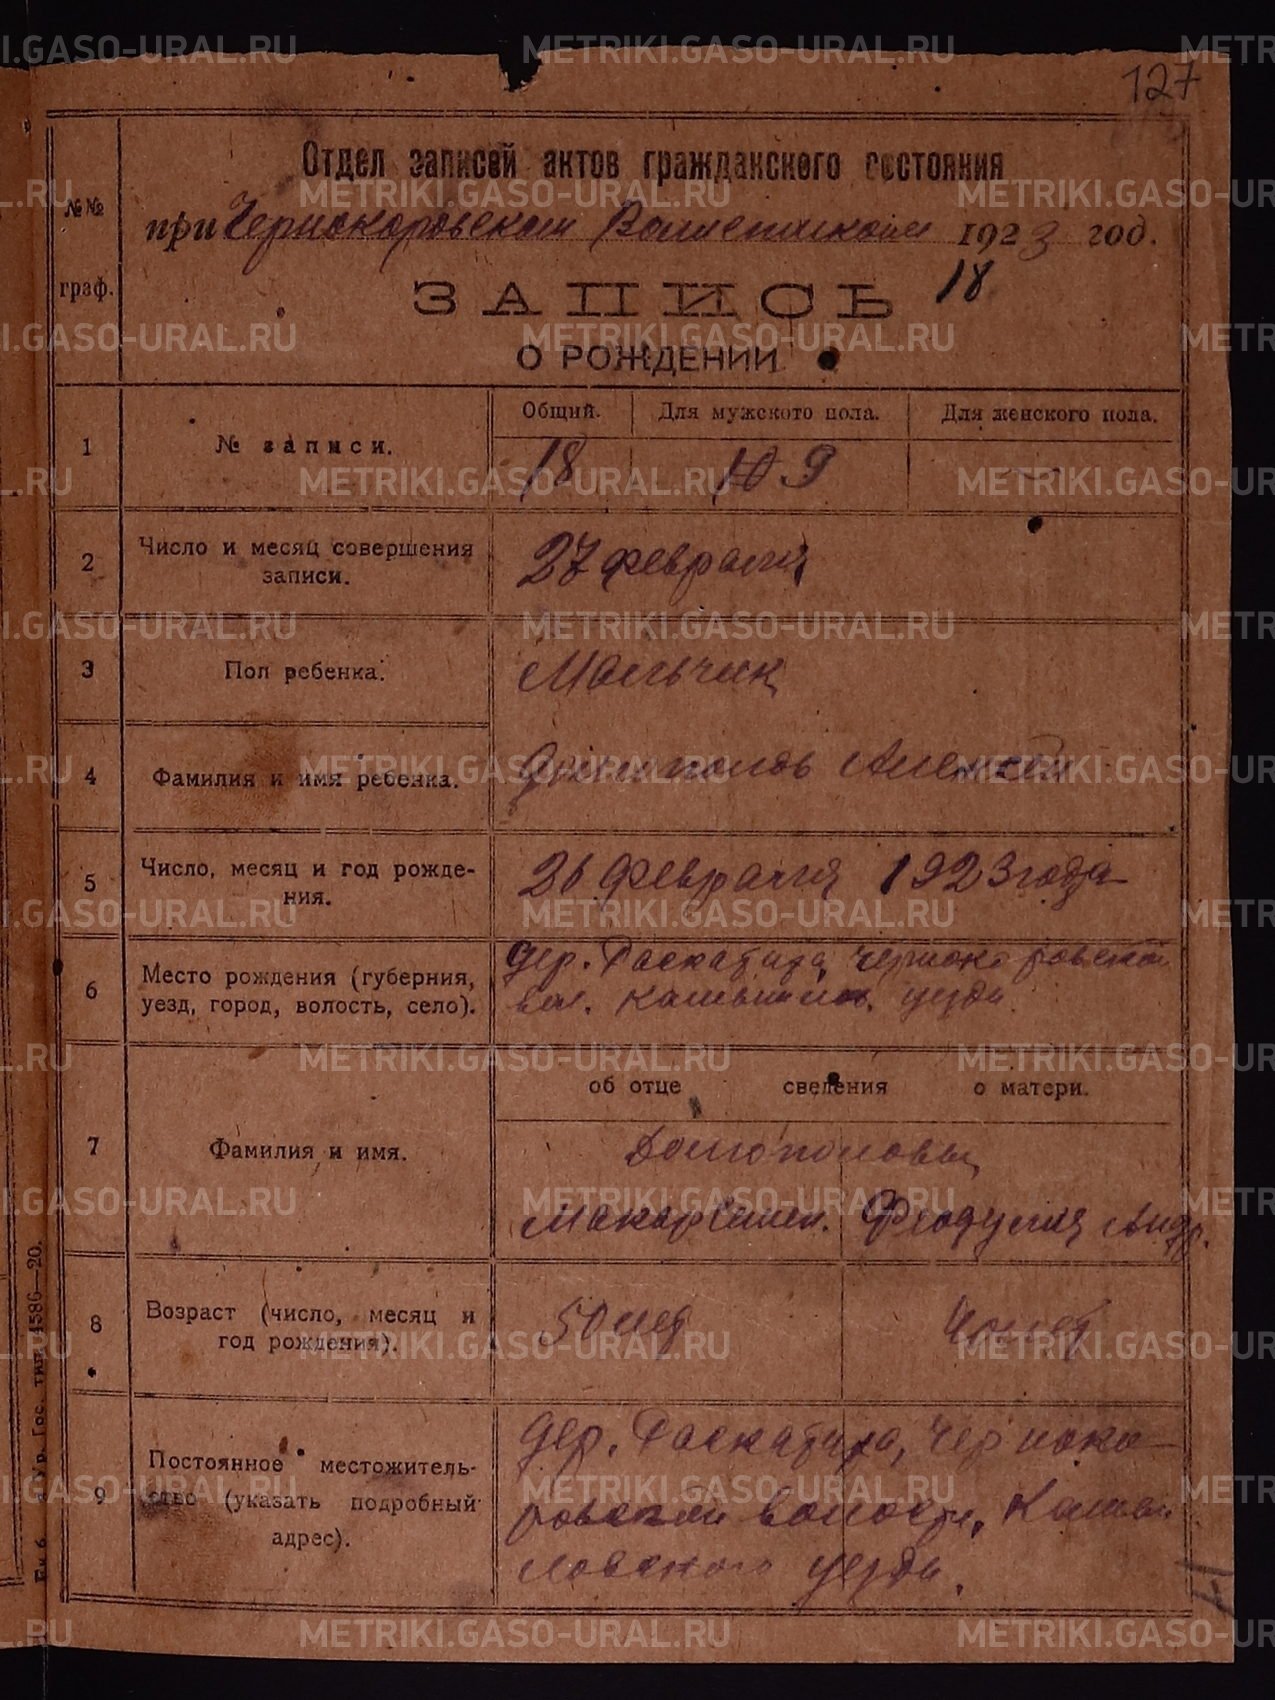 127
Отдел записей актов гражданского состояния
№№ граф.
при Чернокоровском Волисполкоме 1923 год.
18
ЗАПИСЬ
О РОЖДЕНИИ
1 № записи.
Общий. Для мужского пола. Для женского пола.
18 10 9 —
2 Число и месяц совершения
записи.
27 февраля
3 Пол ребенка.
Мальчик
4 Фамилия и имя ребенка.
Долгополовъ Алексей
5 Число, месяц и год рожде-
ния.
26 февраля 1923 года
6 Место рождения (губерния,
уезд, город, волость, село).
Дер. Раскатиха, Чернокоровской
вол. Камышл. уезда
об отце сведения о матери.
7 Фамилия и имя.
Долгополовы
Макар Феодулия Андр.
8 Возраст (число, месяц и
год рождения).
50 лет 40 лет
9 Постоянное местожитель-
ство (указать подробный
адрес).
Дер. Раскатиха, Черноко-
ровской волости, Камыш
ловского уезда.
Ур. Гос. тип. 4586—20.
METRIKI.GASO-URAL.RU